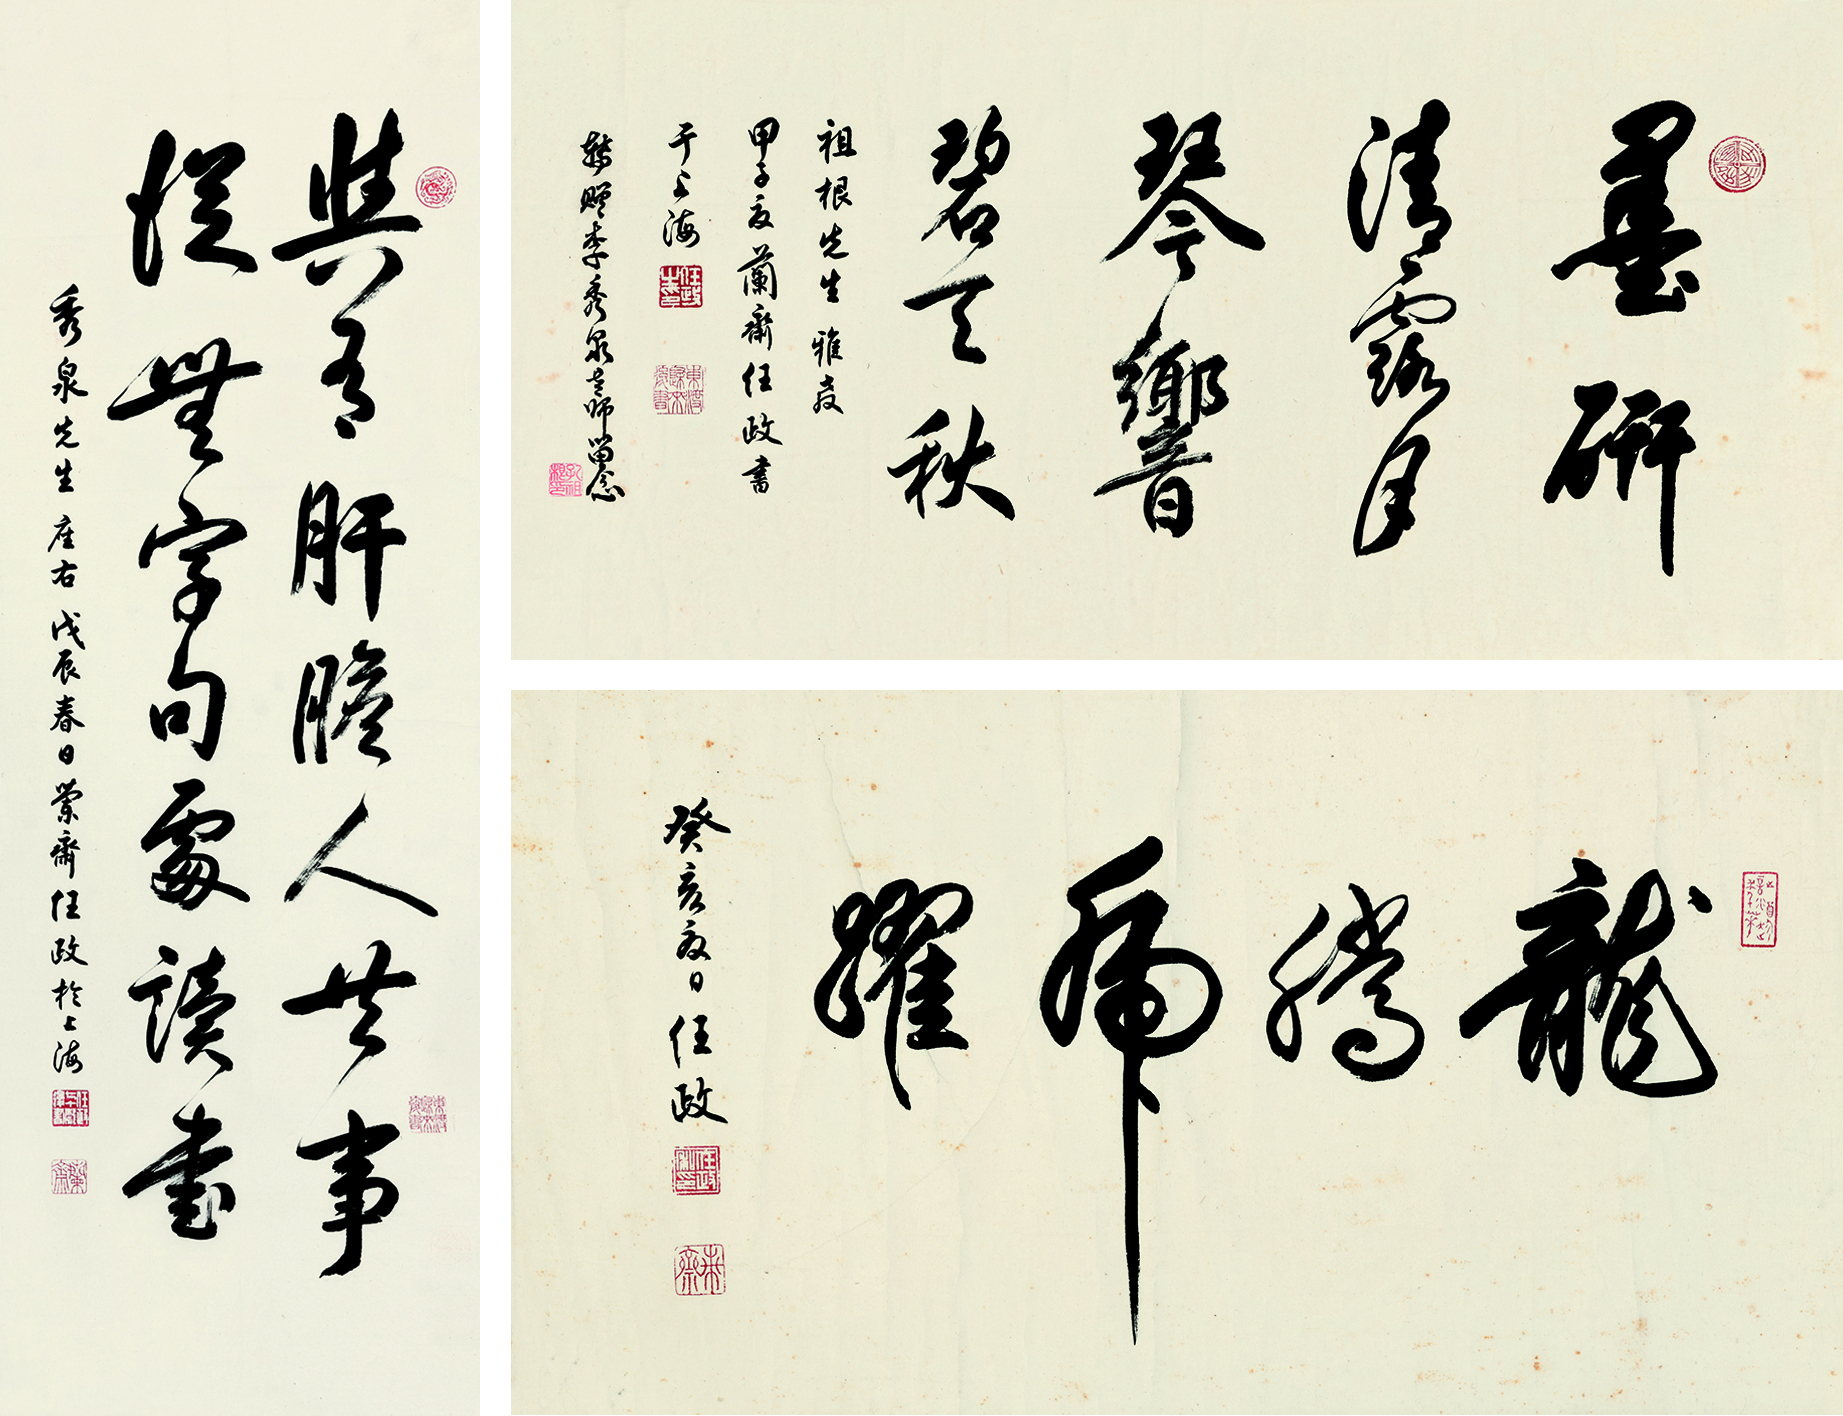 與有肝膽人共事
從無字句處讀書
秀泉先生座右戊辰春日榮齋任政於上海
墨研
清露月
琴響
碧天秋
祖根先生雅教
甲子夏蘭齋任政書
于上海
轉贈李秀泉老師留念
龍騰虎躍
癸亥夏日任政